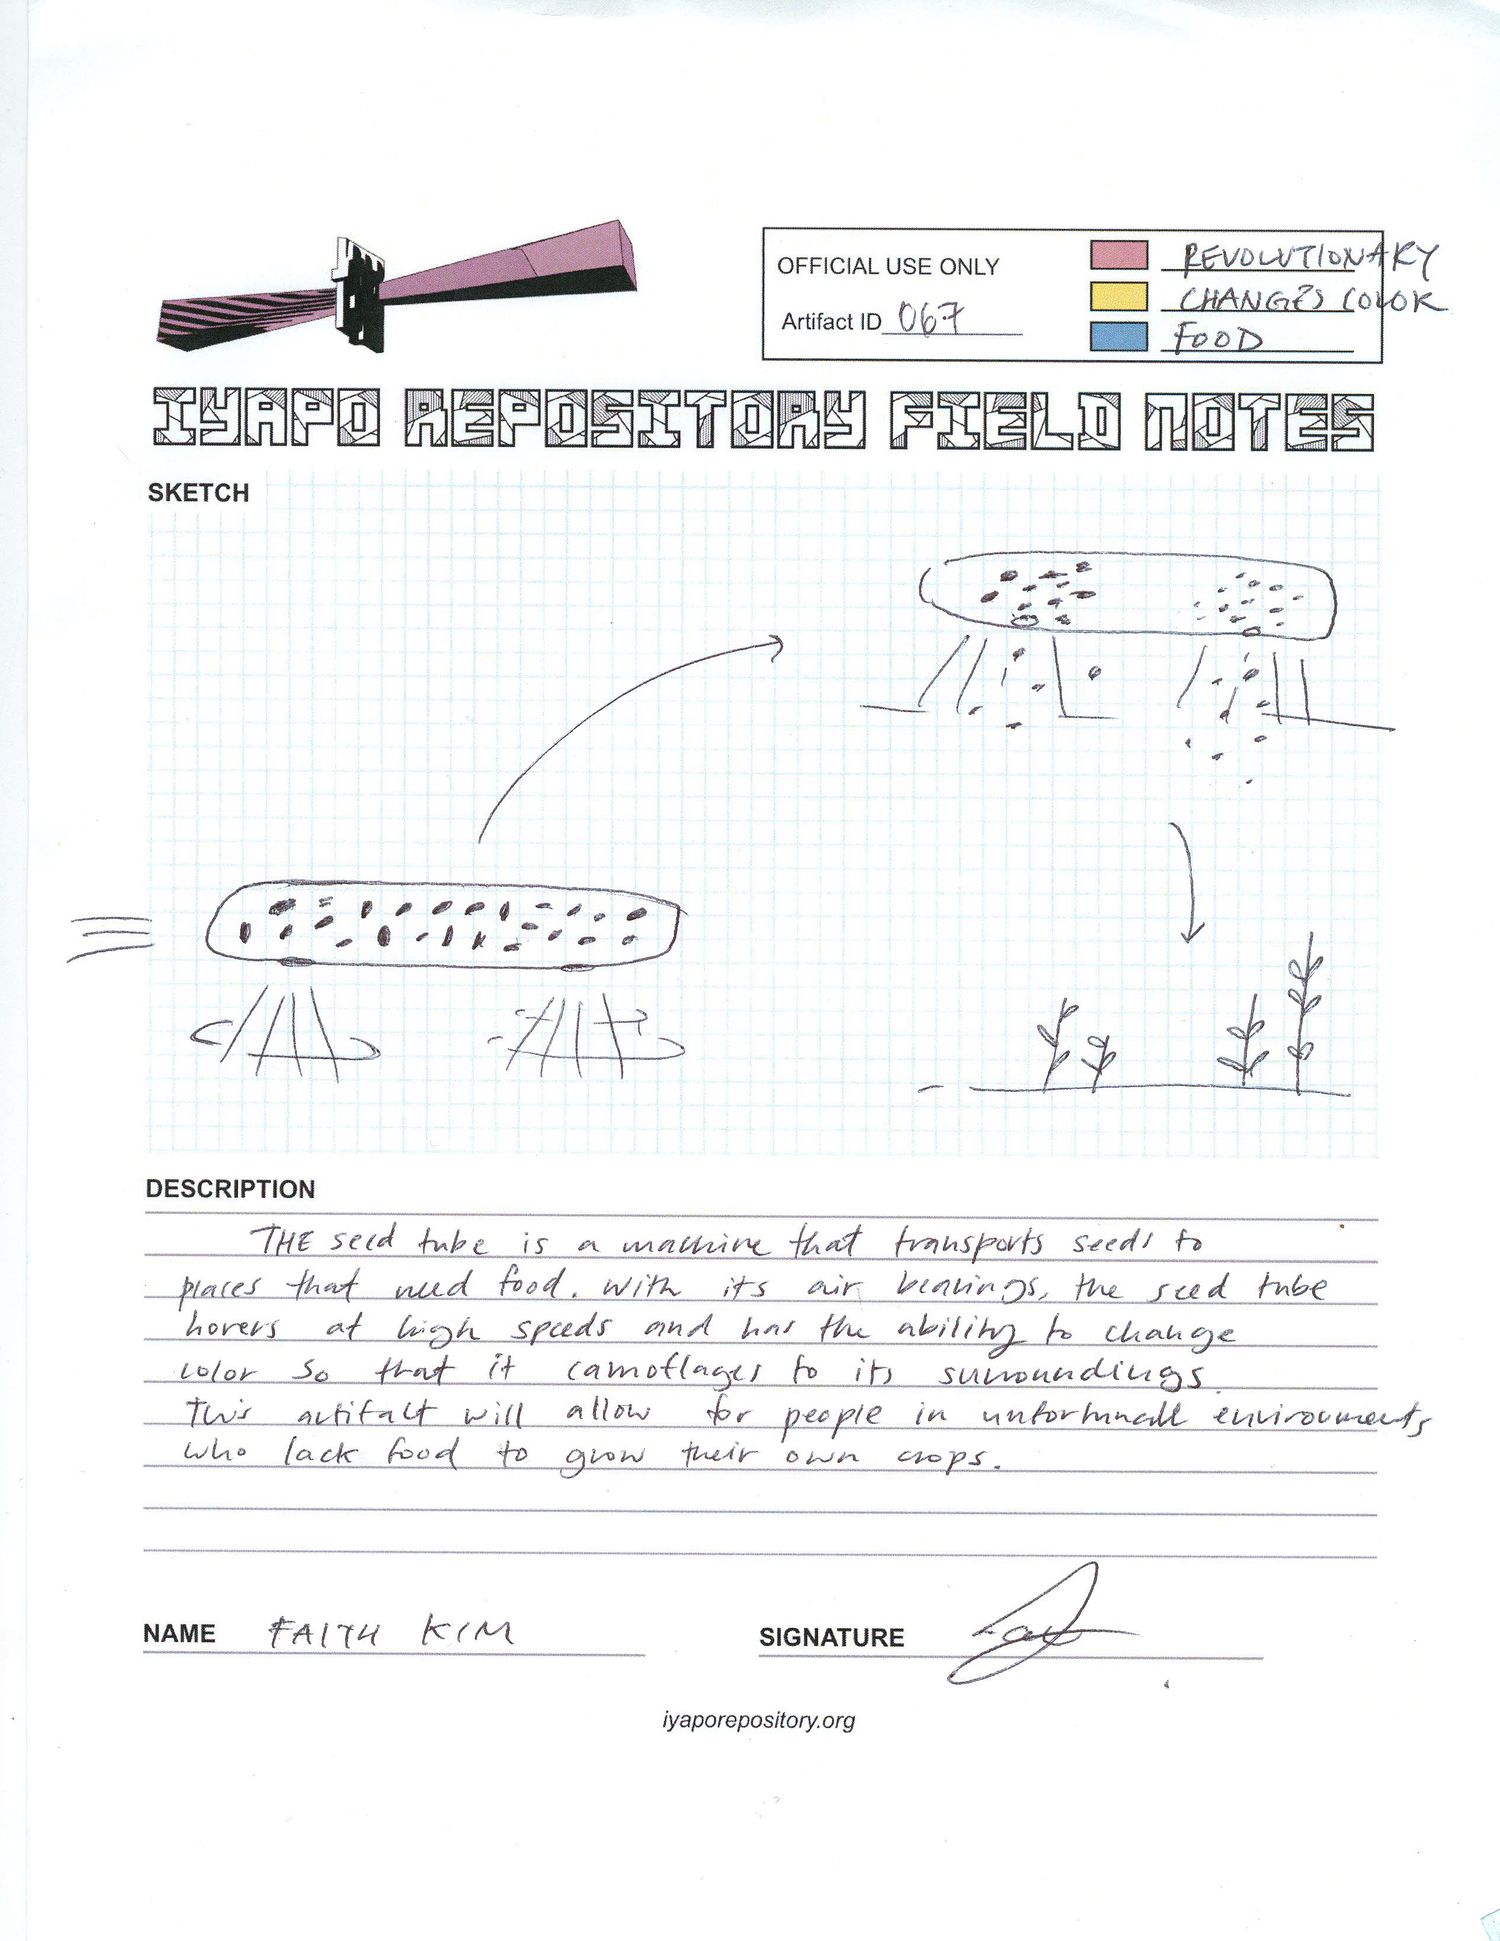 OFFICIAL USE ONLY
Artifact ID 067
REVOLUTIONARY
CHANGES COLOR
FOOD
IYAPO REPOSITORY FIELD NOTES
SKETCH
DESCRIPTION
THE seed tube is a machine that transports seeds to
places that need food. With its air bearings, the seed tube
hovers at high speeds and has the ability to change
color so that it camoflages to its surroundings.
This artifact will allow for people in unfortunate environments
who lack food to grow their own crops.
NAME FAITH KIM
SIGNATURE
iyaporepository.org